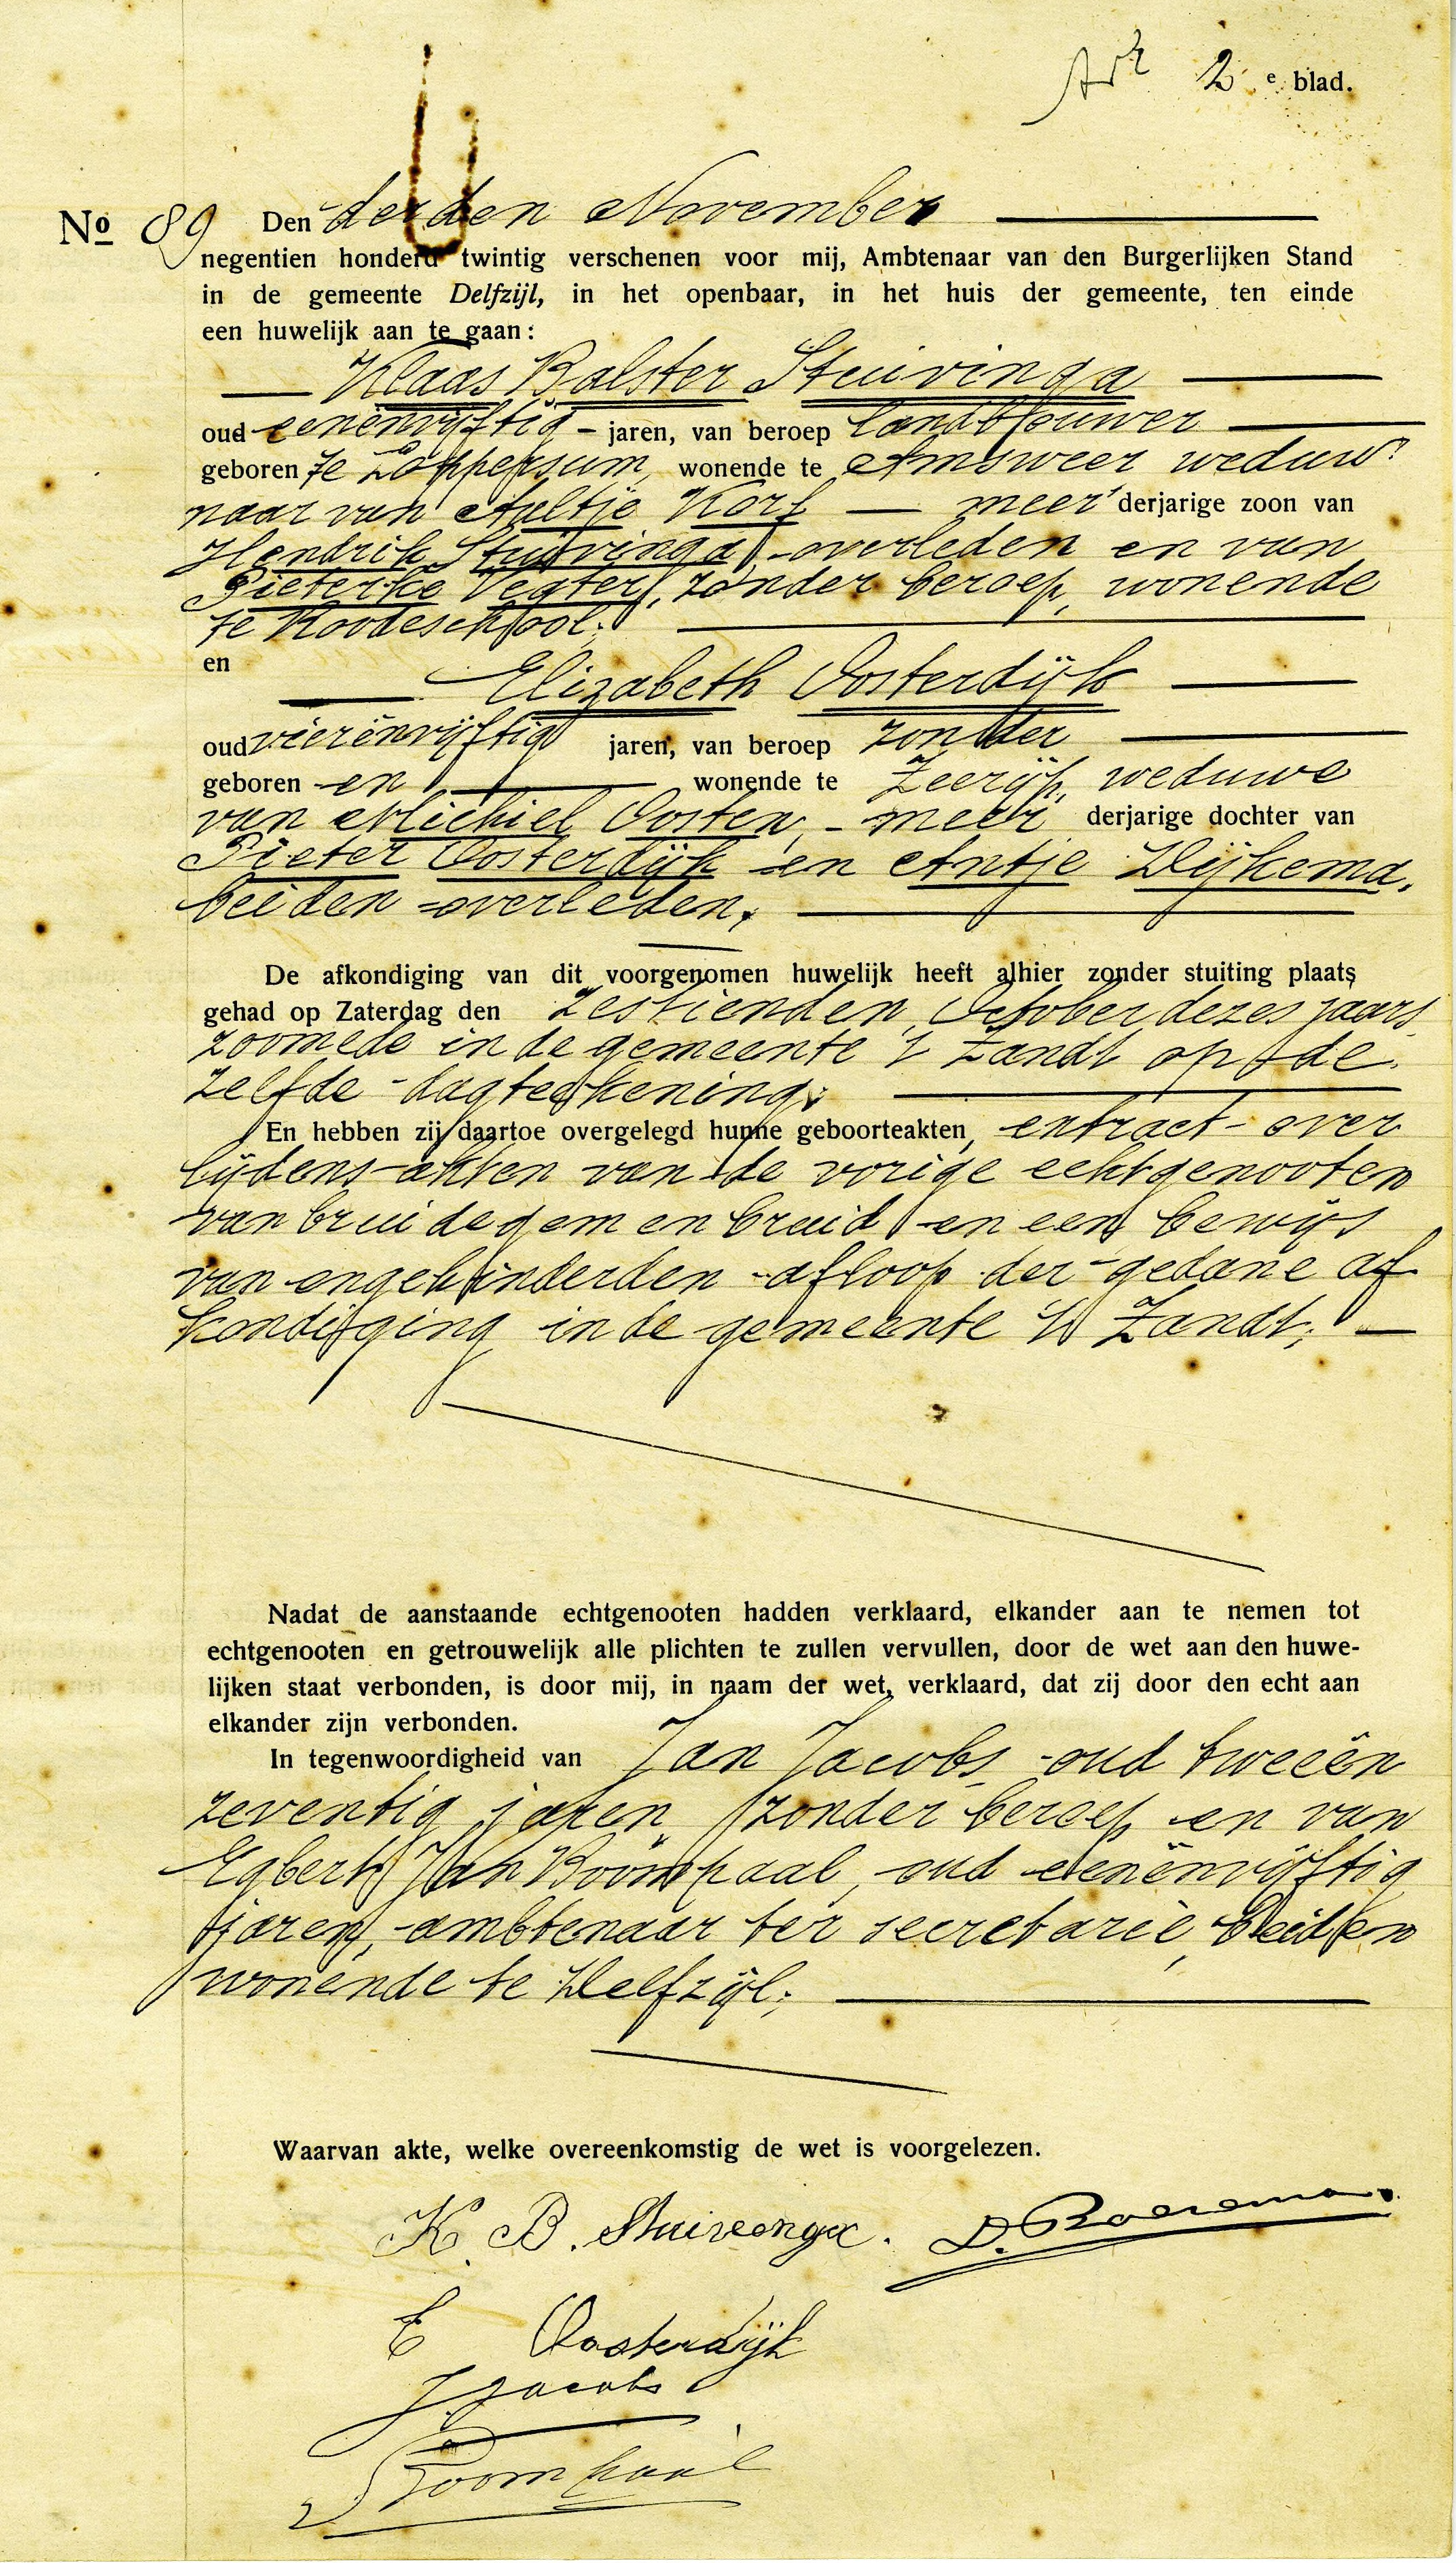 2 e blad.
No 89 Den derden November
negentien honderd twintig verschenen voor mij, Ambtenaar van den Burgerlijken Stand
in de gemeente Delfzijl, in het openbaar, in het huis der gemeente, ten einde
een huwelijk aan te gaan:
Klaas Balster Stuivinga
oud eenënvijftig - jaren, van beroep landbouwer
geboren te Loppersum, wonende te Amsweer weduw-
naar van Aaltje Korf — meer derjarige zoon van
Hendrik Stuivinga, overleden en van
Pieterke Vegter, zonder beroep, wonende
te Roodeschool;
en
Elizabeth Oosterdijk
oud vierënvijftig jaren, van beroep zonder
geboren en wonende te Zeerijp, weduwe
van Michiel Oosten, - meer derjarige dochter van
Pieter Oosterdijk en Antje Dijkema,
beiden overleden,
De afkondiging van dit voorgenomen huwelijk heeft alhier zonder stuiting plaats
gehad op Zaterdag den zestienden October dezes jaars
zoomede in de gemeente 't Zandt op de
zelfde dagteekening;
En hebben zij daartoe overgelegd hunne geboorteakten, extract-over
lijdens-akten van de vorige echtgenooten
van bruidegom en bruid en een bewijs
van ongehinderden afloop der gedane af
kondiging in de gemeente 't Zandt;
Nadat de aanstaande echtgenooten hadden verklaard, elkander aan te nemen tot
echtgenooten en getrouwelijk alle plichten te zullen vervullen, door de wet aan den huwe-
lijken staat verbonden, is door mij, in naam der wet, verklaard, dat zij door den echt aan
elkander zijn verbonden.
In tegenwoordigheid van Jan Jacobs, oud tweeën
zeventig jaren, zonder beroep en van
Egbert Jan Boompaal, oud eenënvijftig
jaren, ambtenaar ter secretarie, beiden
wonende te Delfzijl;
Waarvan akte, welke overeenkomstig de wet is voorgelezen.
K. B. Stuivenga. D. Boerema.
E Oosterdijk
J. Jacobs
Boompaal